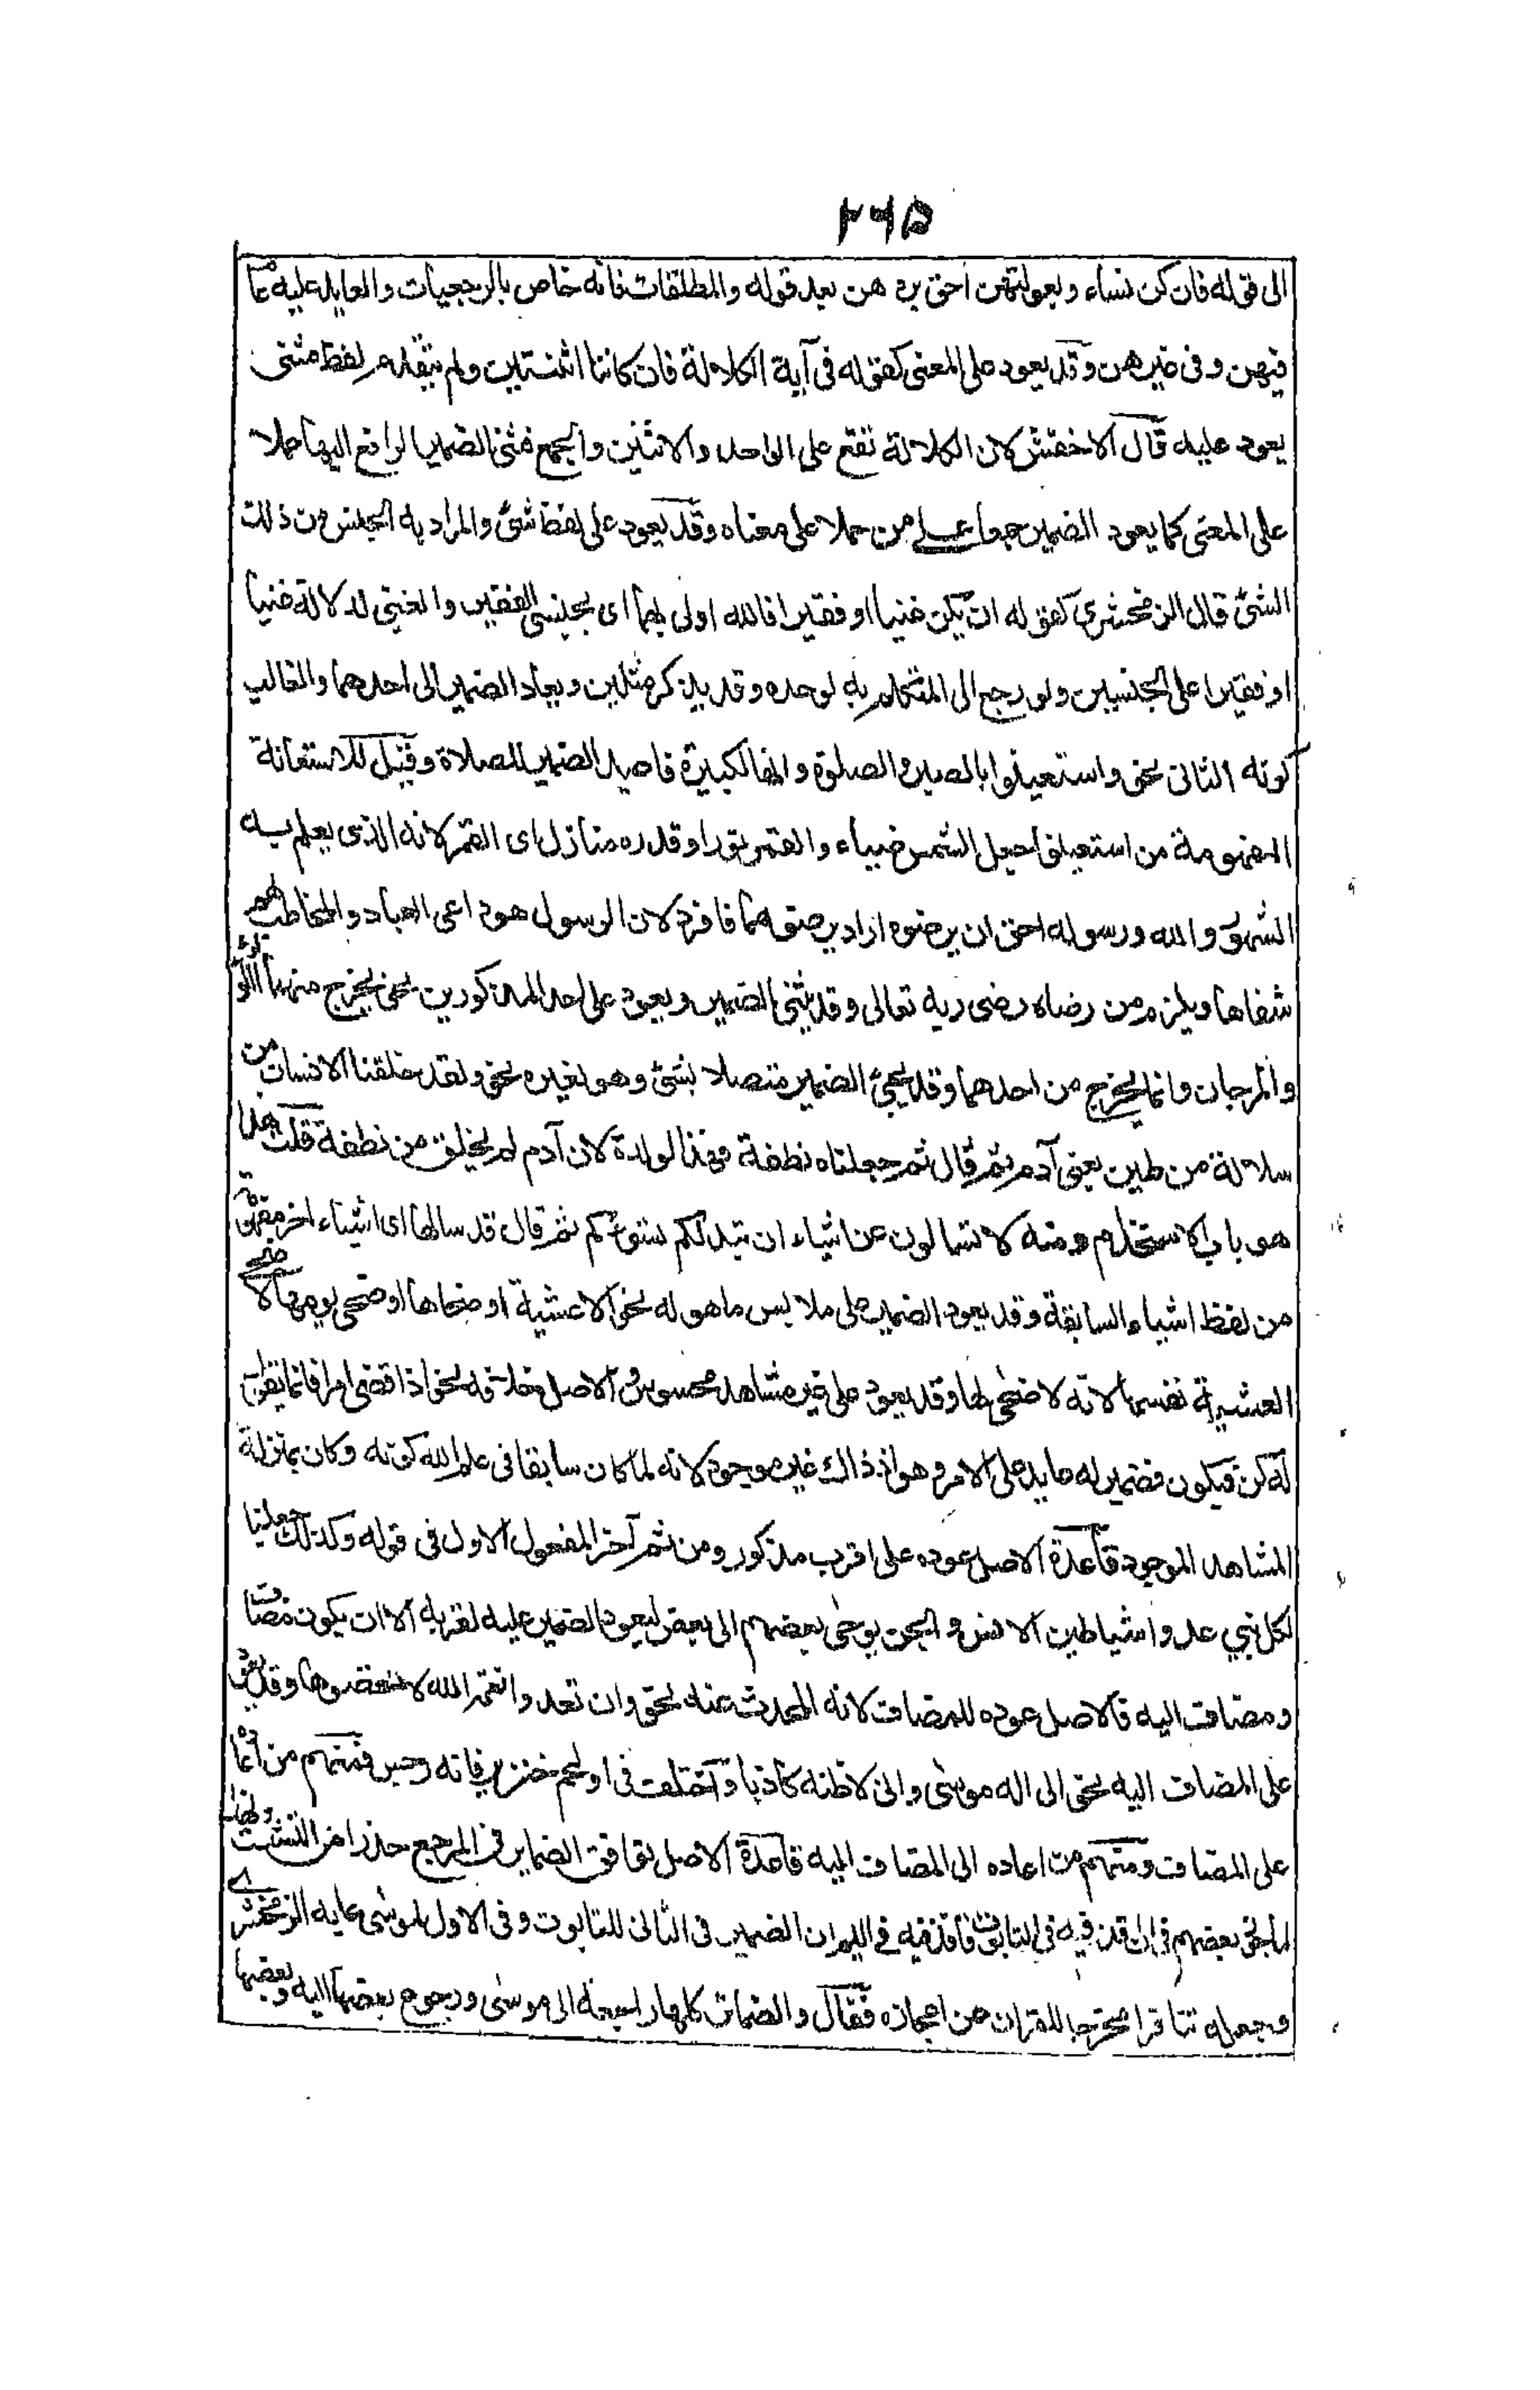 ٢٦٥
الى قوله فان كن نساء وبعولتهن احق بردهن بعد قوله والمطلقات فانه خاص بالرجعيات والعايد عليه عام
فيهن وفى غيرهن وقد يعود على المعنى كقوله فى آية الكلالة فان كانتا اثنتين ولم يتقدم لفظ مثنى
يعود عليه قال الاخفش لان الكلالة تقع على الواحد والاثنين والجمع فثنى الضمير الراجع اليها حملا
على المعنى كما يعود الضمير جمعا على من حملا على معناه وقد يعود على لفظ شئ والمراد به الجنس من ذلك
الشئ قال الزمخشرى كقوله ان يكن غنيا او فقيرا فالله اولى بهما اى بجنسى الفقير والغنى لدلالة غنيا
او فقيرا على الجنسين ولو رجع الى المتكلم به لوحده وقد يذكر شيئين ويعاد الضمير الى احدهما والغالب
كونه الثانى نحو واستعينوا بالصبر والصلوة وانها لكبيرة فاعيد الضمير للصلاة وقيل للاستعانة
المفهومة من استعينوا جعل الشمس ضياء والقمر نورا وقدره منازل اى القمر لانه الذى يعلم به
الشهور والله ورسوله احق ان يرضوه اراد يرضوهما فافرد لان الرسول هو داعى العباد والمخاطب لهم
شفاها ويلزم من رضاه رضى ربه تعالى وقد يثنى الضمير ويعود على احد المذكورين نحو يخرج منهما اللؤلؤ
والمرجان وانما يخرج من احدهما وقد يجئ الضمير متصلا بشئ وهو لغيره نحو ولقد خلقنا الانسان من
سلالة من طين يعنى آدم ثم قال ثم جعلناه نطفة فهذا لولده لان آدم لم يخلق من نطفة قلت هذا
هو باب الاستخدام ومنه لا تسالون عن اشياء ان تبد لكم تسؤكم ثم قال قد سالها اى اشياء اخر مفهومة
من لفظ اشياء السابقة وقد يعود الضمير على ملابس ما هو له نحو الا عشية او ضحاها اى ضحى يومها لا ضحى
العشية نفسها لانه لا ضحى لها وقد يعود على غير مشاهد محسوس والاصل خلافه نحو اذا قضى امرا فانما يقول
له كن فيكون فضمير له عايد على الامر وهو اذ ذاك غير موجود لانه لما كان سابقا فى علم الله كونه وكان بمنزلة
المشاهد الموجود قاعدة الاصل عوده على اقرب مذكور ومن ثم آخر المفعول الاول فى قوله وكذلك جعلنا
لكل نبي عدوا شياطين الانس والجن يوحى بعضهم الى بعض ليعود الضمير عليه لقربه الا ان يكون مضاف
ومضاف اليه فالاصل عوده للمضاف لانه المحدث عنه نحو وان تعدوا نعمة الله لا تحصوها وقد يعود
على المضاف اليه نحو الى اله موسى وانى لاظنه كاذبا واختلف فى او لحم خنزير فانه رجس فمنهم من اعاده
على المضاف ومنهم من اعاده الى المضاف اليه قاعدة الاصل توافق الضماير فى المرجع حذرا من التشتت ولهذا
لما جوز بعضهم فى ان اقذفيه فى التابوت فاقذفيه فى اليم ان الضمير فى الثانى للتابوت وفى الاول لموسى عابه الزمخشرى
وجعله تنافرا مخرجا للقران عن اعجازه فقال والضمائر كلها راجعة الى موسى ورجوع بعضها اليه وبعضها